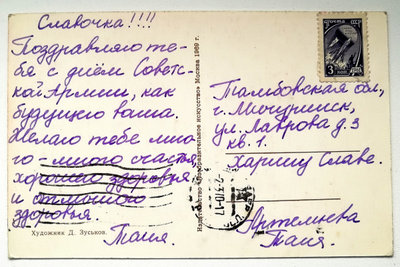 Славочка!!!!
Поздравляю те-
бя с днём Советс-
кой Армии, как
будущего воина.
Желаю тебе мно-
го-много счастья,
хорошего здоровья
и отличного
здоровья.
Таня.
Художник Д. Зуськов.
Издательство «Изобразительное искусство» Москва 1969 г.
ПОЧТА
СССР
3 КОП
Тамбовская обл,
г. Мичуринск,
ул. Лаврова д. 3
кв. 1.
Харину Славе.
Таня.